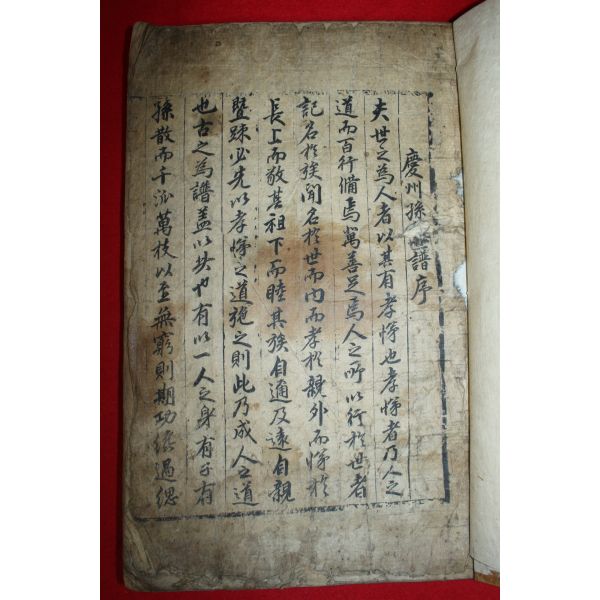 慶州孫氏譜序
夫世之為人者以其有孝悌也孝悌者乃人之
道而百行備焉萬善足焉人之所以行於世者
記名於族聞名於世而内而孝於親外而悌於
長上而敬其祖下而睦其族自邇及遠自親
曁踈必先以孝悌之道施之則此乃成人之道
也古之為譜盖以此也有以一人之身有子有
孫散而千派萬枝以至無窮則期功緦過緦